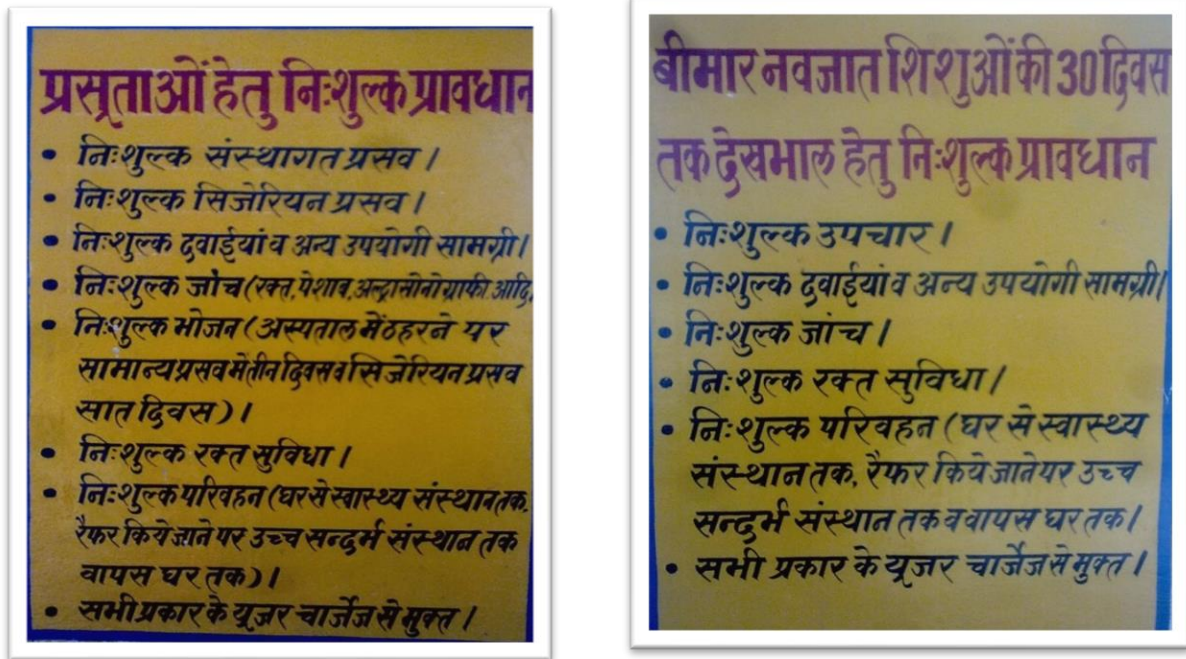 प्रसूताओं हेतु निःशुल्क प्रावधान
• निःशुल्क संस्थागत प्रसव।
• निःशुल्क सिजेरियन प्रसव।
• निःशुल्क दवाईयां व अन्य उपयोगी सामग्री।
• निःशुल्क जांच (रक्त, पेशाब, अल्ट्रासोनोग्राफी आदि
• निःशुल्क भोजन (अस्पताल में ठहरने पर
सामान्य प्रसव में तीन दिवस व सिजेरियन प्रसव
सात दिवस)।
• निःशुल्क रक्त सुविधा।
• निःशुल्क परिवहन (घर से स्वास्थ्य संस्थान तक,
रैफर किये जाने पर उच्च सन्दर्भ संस्थान तक
वापस घर तक)।
• सभी प्रकार के यूजर चार्जेज से मुक्त।
बीमार नवजात शिशुओं की 30 दिवस
तक देखभाल हेतु निःशुल्क प्रावधान
• निःशुल्क उपचार।
• निःशुल्क दवाईयां व अन्य उपयोगी सामग्री।
• निःशुल्क जांच।
• निःशुल्क रक्त सुविधा।
• निःशुल्क परिवहन (घर से स्वास्थ्य
संस्थान तक, रैफर किये जाने पर उच्च
सन्दर्भ संस्थान तक व वापस घर तक।
• सभी प्रकार के यूजर चार्जेज से मुक्त।